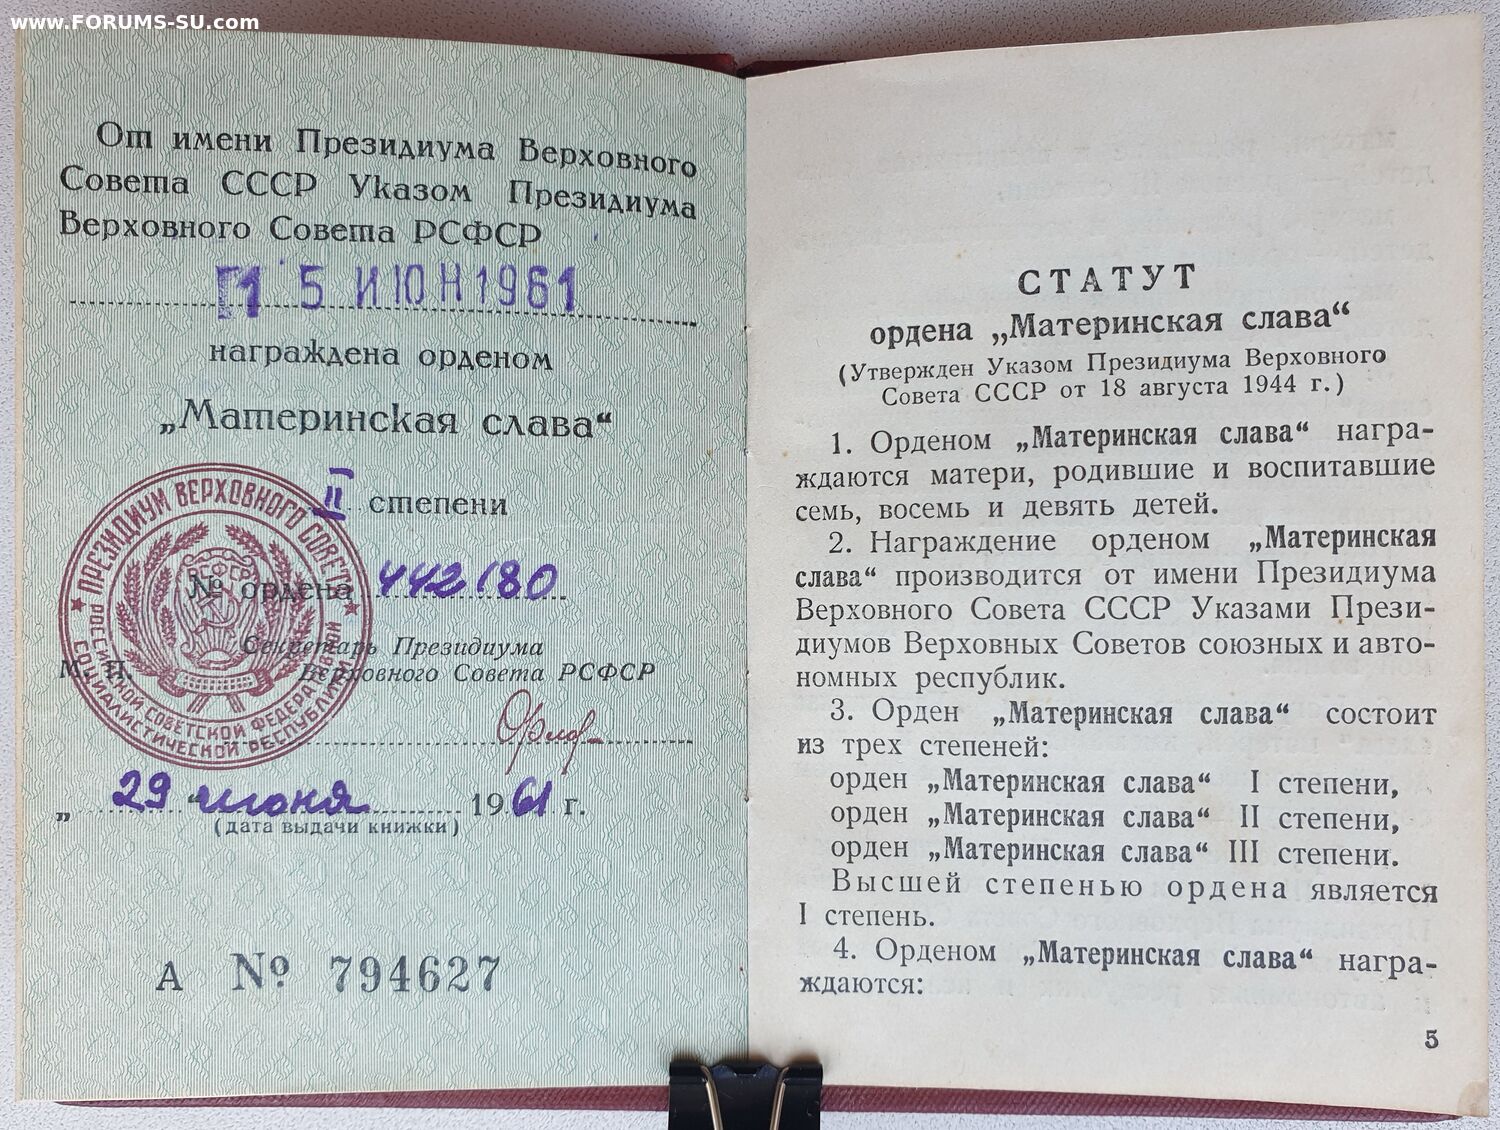 www.FORUMS-SU.com
От имени Президиума Верховного
Совета СССР Указом Президиума
Верховного Совета РСФСР
15 ИЮН 1961
награждена орденом
„Материнская слава“
II степени
№ ордена 442180
Секретарь Президиума
М. П. Верховного Совета РСФСР
ПРЕЗИДИУМ ВЕРХОВНОГО СОВЕТА
РОССИЙСКОЙ СОВЕТСКОЙ ФЕДЕРАТИВНОЙ
СОЦИАЛИСТИЧЕСКОЙ РЕСПУБЛИКИ
РСФСР
„29“ июня 1961 г.
(дата выдачи книжки)
А № 794627
СТАТУТ
ордена „Материнская слава“
(Утвержден Указом Президиума Верховного
Совета СССР от 18 августа 1944 г.)
1. Орденом „Материнская слава“ награ-
ждаются матери, родившие и воспитавшие
семь, восемь и девять детей.
2. Награждение орденом „Материнская
слава“ производится от имени Президиума
Верховного Совета СССР Указами Прези-
диумов Верховных Советов союзных и авто-
номных республик.
3. Орден „Материнская слава“ состоит
из трех степеней:
орден „Материнская слава“ I степени,
орден „Материнская слава“ II степени,
орден „Материнская слава“ III степени.
Высшей степенью ордена является
I степень.
4. Орденом „Материнская слава“ награ-
ждаются:
5